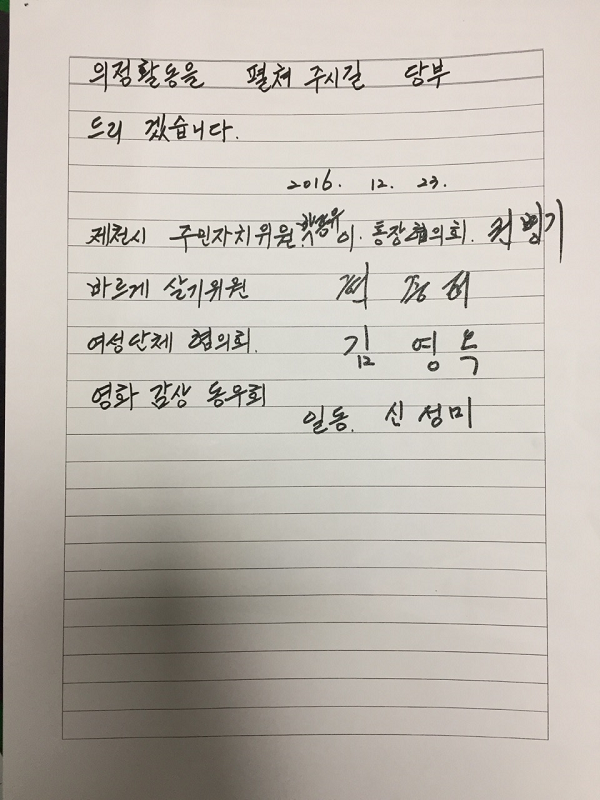 의정활동을 펼쳐 주시길 당부
드리 겠습니다.
2016. 12. 23.
제천시 주민자치위원. 이.통장협의회.
바르게 살기위원
여성단체 협의회. 김 영 옥
영화 감상 동우회
일동. 신 성 미